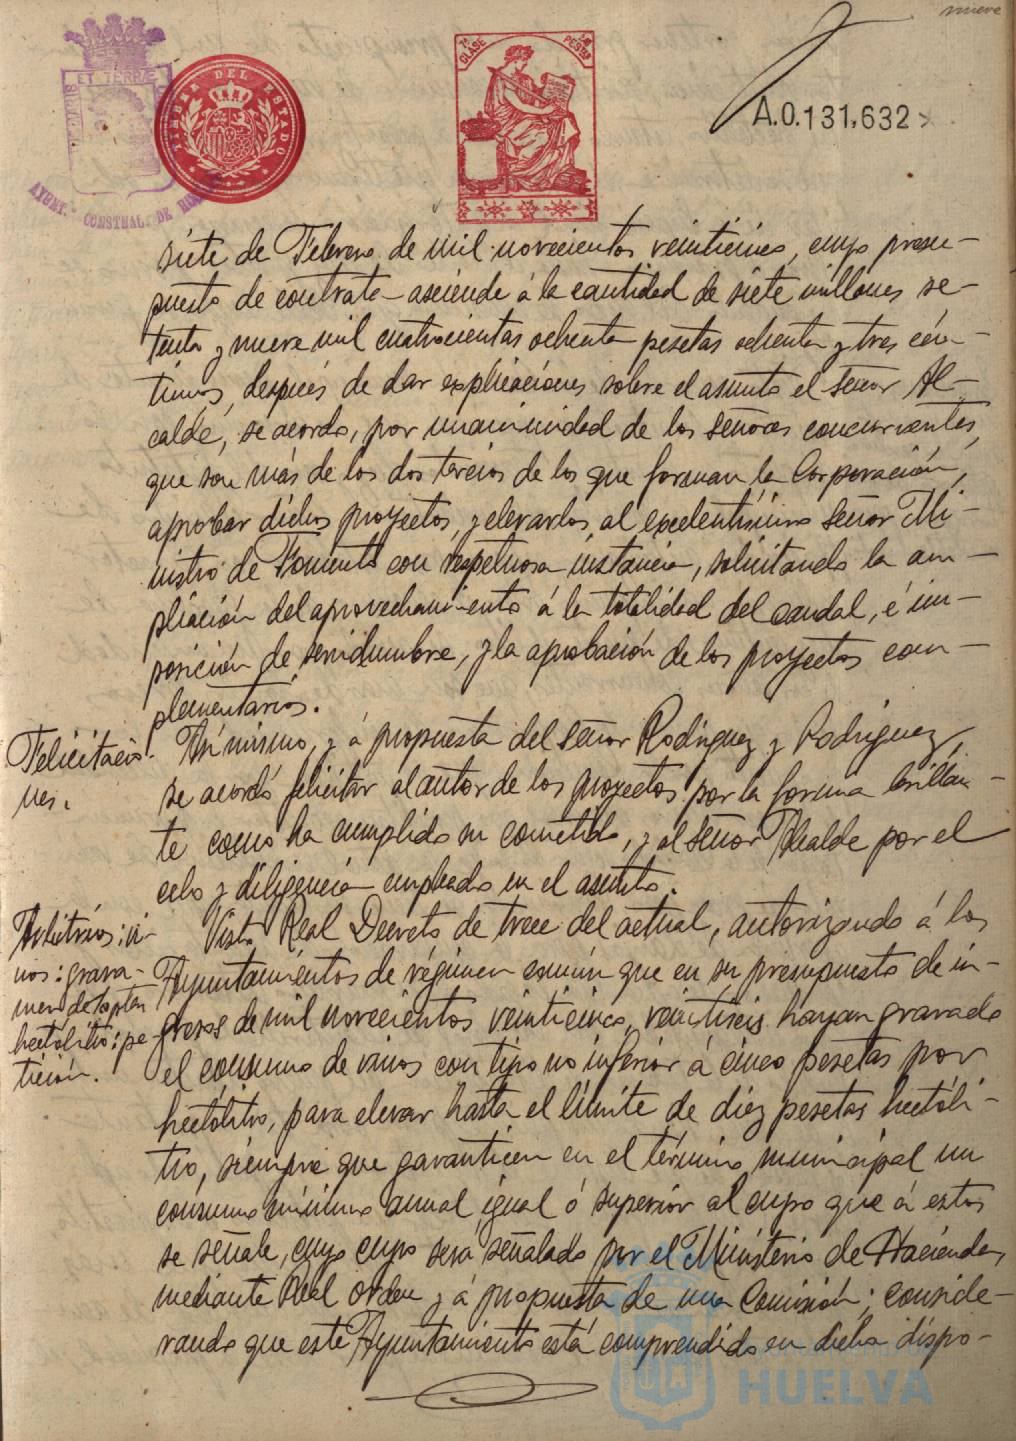 nueve
ET TERRÆ
TIMBRE DEL ESTADO
7ª CLASE
PESTAS
A.0.131,632
AYUNT. CONSTNAL. DE
siete de Febrero de mil novecientos veinticinco, cuyo presu-
puesto de contrata asciende á la cantidad de siete millones se-
tenta y nueve mil cuatrocientas ochenta pesetas ochenta y tres cén-
timos, después de dar explicaciones sobre el asunto el Señor Al-
calde, se acordó, por unanimidad de los señores concurrentes,
que son más de los dos tercios de los que forman la Corporación,
aprobar dichos proyectos, y elevarlos al excelentísimo Señor Mi-
nistro de Fomento con respetuosa instancia, solicitando la am-
pliación del aprovechamiento á la totalidad del caudal, é im-
posición de servidumbre, y la aprobación de los proyectos com-
plementarios.
Felicitacio-
nes.
Asímismo, y á propuesta del Señor Rodríguez y Rodríguez,
se acordó felicitar al autor de los proyectos por la forma brillan-
te como ha cumplido su cometido, y al Señor Alcalde por el
celo y diligencia empleado en el asunto.
Arbitrios: vi-
nos: grava-
men de
hectólitro: pe-
tición.
Visto Real Decreto de trece del actual, autorizando á los
Ayuntamientos de régimen común que en su presupuesto de in-
gresos de mil novecientos veinticinco veintiseis hayan gravado
el consumo de vinos con tipo no inferior á cinco pesetas por
hectólitro, para elevar hasta el límite de diez pesetas hectóli-
tro, siempre que garanticen en el término municipal un
consumo mínimo anual igual ó superior al cupo que á estos
se señale, cuyo cupo será señalado por el Ministerio de Hacienda,
mediante Real orden y á propuesta de una Comisión; conside-
rando que este Ayuntamiento está comprendido en dicha dispo-
HUELVA